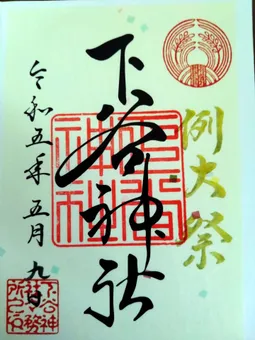 例大祭
下谷神社
令和五年五月九日
下谷神社